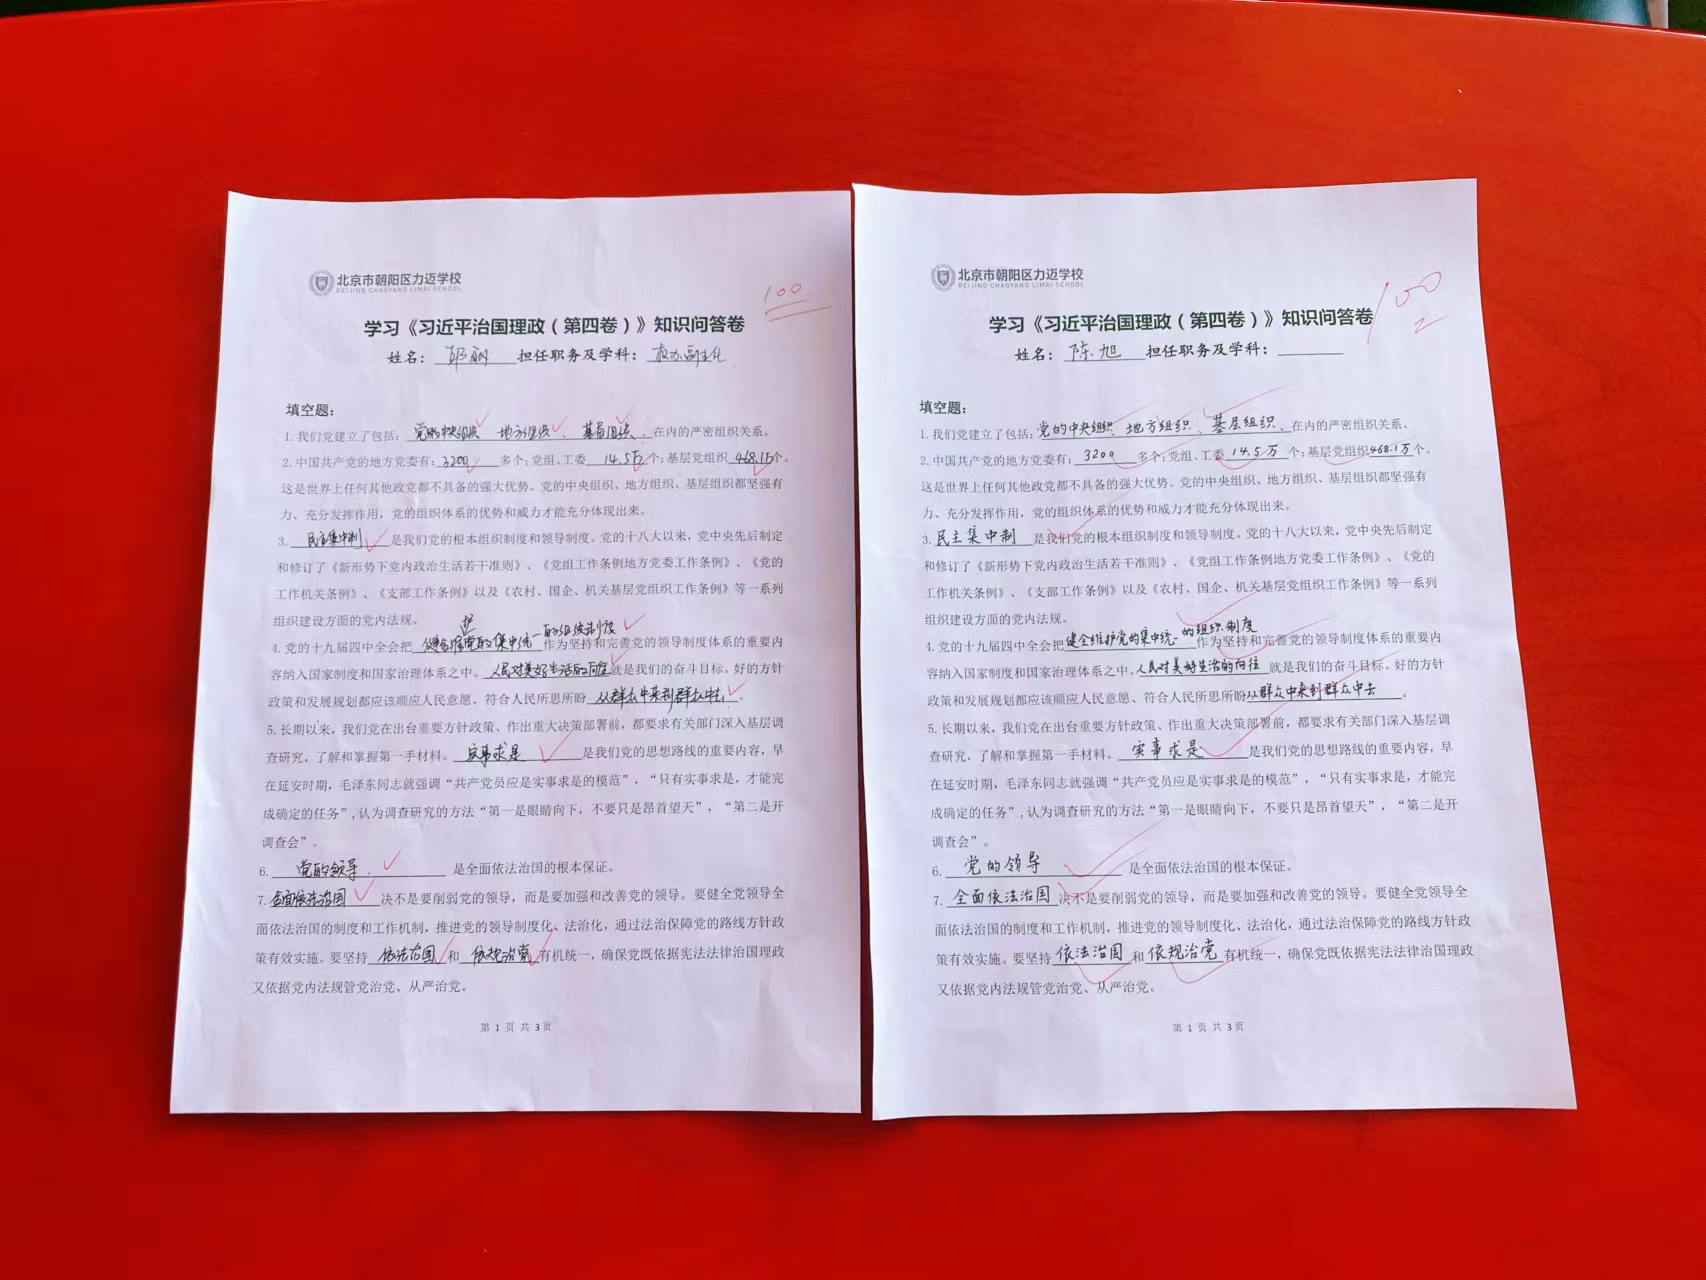 北京市朝阳区力迈学校
BEIJING CHAOYANG LIMAI SCHOOL
100
学习《习近平治国理政（第四卷）》知识问答卷
姓名： 担任职务及学科：校办副主任
填空题：
1. 我们党建立了包括：党的中央组织 地方组织、基层组织、在内的严密组织关系。
2. 中国共产党的地方党委有：3200多个；党组、工委 14.5万个；基层党组织468.1万个。
这是世界上任何其他政党都不具备的强大优势。党的中央组织、地方组织、基层组织都坚强有
力、充分发挥作用，党的组织体系的优势和威力才能充分体现出来。
3. 民主集中制 是我们党的根本组织制度和领导制度。党的十八大以来，党中央先后制定
和修订了《新形势下党内政治生活若干准则》、《党组工作条例地方党委工作条例》、《党的
工作机关条例》、《支部工作条例》以及《农村、国企、机关基层党组织工作条例》等一系列
组织建设方面的党内法规。
4. 党的十九届四中全会把 健全维护党的集中统一的组织制度 作为坚持和完善党的领导制度体系的重要内
容纳入国家制度和国家治理体系之中。人民对美好生活的向往就是我们的奋斗目标。好的方针
政策和发展规划都应该顺应人民意愿、符合人民所思所盼 从群众中来到群众中去。
5. 长期以来，我们党在出台重要方针政策、作出重大决策部署前，都要求有关部门深入基层调
查研究，了解和掌握第一手材料。实事求是 是我们党的思想路线的重要内容，早
在延安时期，毛泽东同志就强调“共产党员应是实事求是的模范”，“只有实事求是，才能完
成确定的任务”,认为调查研究的方法“第一是眼睛向下，不要只是昂首望天”，“第二是开
调查会”。
6. 党的领导. 是全面依法治国的根本保证。
7. 全面依法治国 决不是要削弱党的领导，而是要加强和改善党的领导。要健全党领导全
面依法治国的制度和工作机制，推进党的领导制度化、法治化，通过法治保障党的路线方针政
策有效实施。要坚持 依法治国 和 依规治党 有机统一，确保党既依据宪法法律治国理政
又依据党内法规管党治党、从严治党。
第 1 页 共 3 页
北京市朝阳区力迈学校
BEIJING CHAOYANG LIMAI SCHOOL
100
学习《习近平治国理政（第四卷）》知识问答卷
姓名：陈旭 担任职务及学科：
填空题：
1. 我们党建立了包括：党的中央组织、地方组织、基层组织、在内的严密组织关系。
2. 中国共产党的地方党委有：3200多个；党组、工委 14.5万 个；基层党组织468.1万个。
这是世界上任何其他政党都不具备的强大优势。党的中央组织、地方组织、基层组织都坚强有
力、充分发挥作用，党的组织体系的优势和威力才能充分体现出来。
3. 民主集中制 是我们党的根本组织制度和领导制度。党的十八大以来，党中央先后制定
和修订了《新形势下党内政治生活若干准则》、《党组工作条例地方党委工作条例》、《党的
工作机关条例》、《支部工作条例》以及《农村、国企、机关基层党组织工作条例》等一系列
组织建设方面的党内法规。
4. 党的十九届四中全会把健全维护党的集中统一的组织制度作为坚持和完善党的领导制度体系的重要内
容纳入国家制度和国家治理体系之中。人民对美好生活的向往就是我们的奋斗目标。好的方针
政策和发展规划都应该顺应人民意愿、符合人民所思所盼从群众中来到群众中去。
5. 长期以来，我们党在出台重要方针政策、作出重大决策部署前，都要求有关部门深入基层调
查研究，了解和掌握第一手材料。实事求是 是我们党的思想路线的重要内容，早
在延安时期，毛泽东同志就强调“共产党员应是实事求是的模范”，“只有实事求是，才能完
成确定的任务”,认为调查研究的方法“第一是眼睛向下，不要只是昂首望天”，“第二是开
调查会”。
6. 党的领导 是全面依法治国的根本保证。
7. 全面依法治国 决不是要削弱党的领导，而是要加强和改善党的领导。要健全党领导全
面依法治国的制度和工作机制，推进党的领导制度化、法治化，通过法治保障党的路线方针政
策有效实施。要坚持 依法治国 和 依规治党 有机统一，确保党既依据宪法法律治国理政
又依据党内法规管党治党、从严治党。
第 1 页 共 3 页